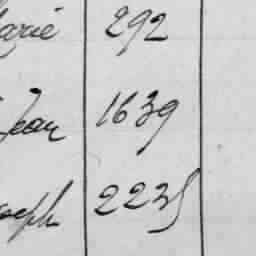 Marie 292
Jean 1639
Joseph 2235